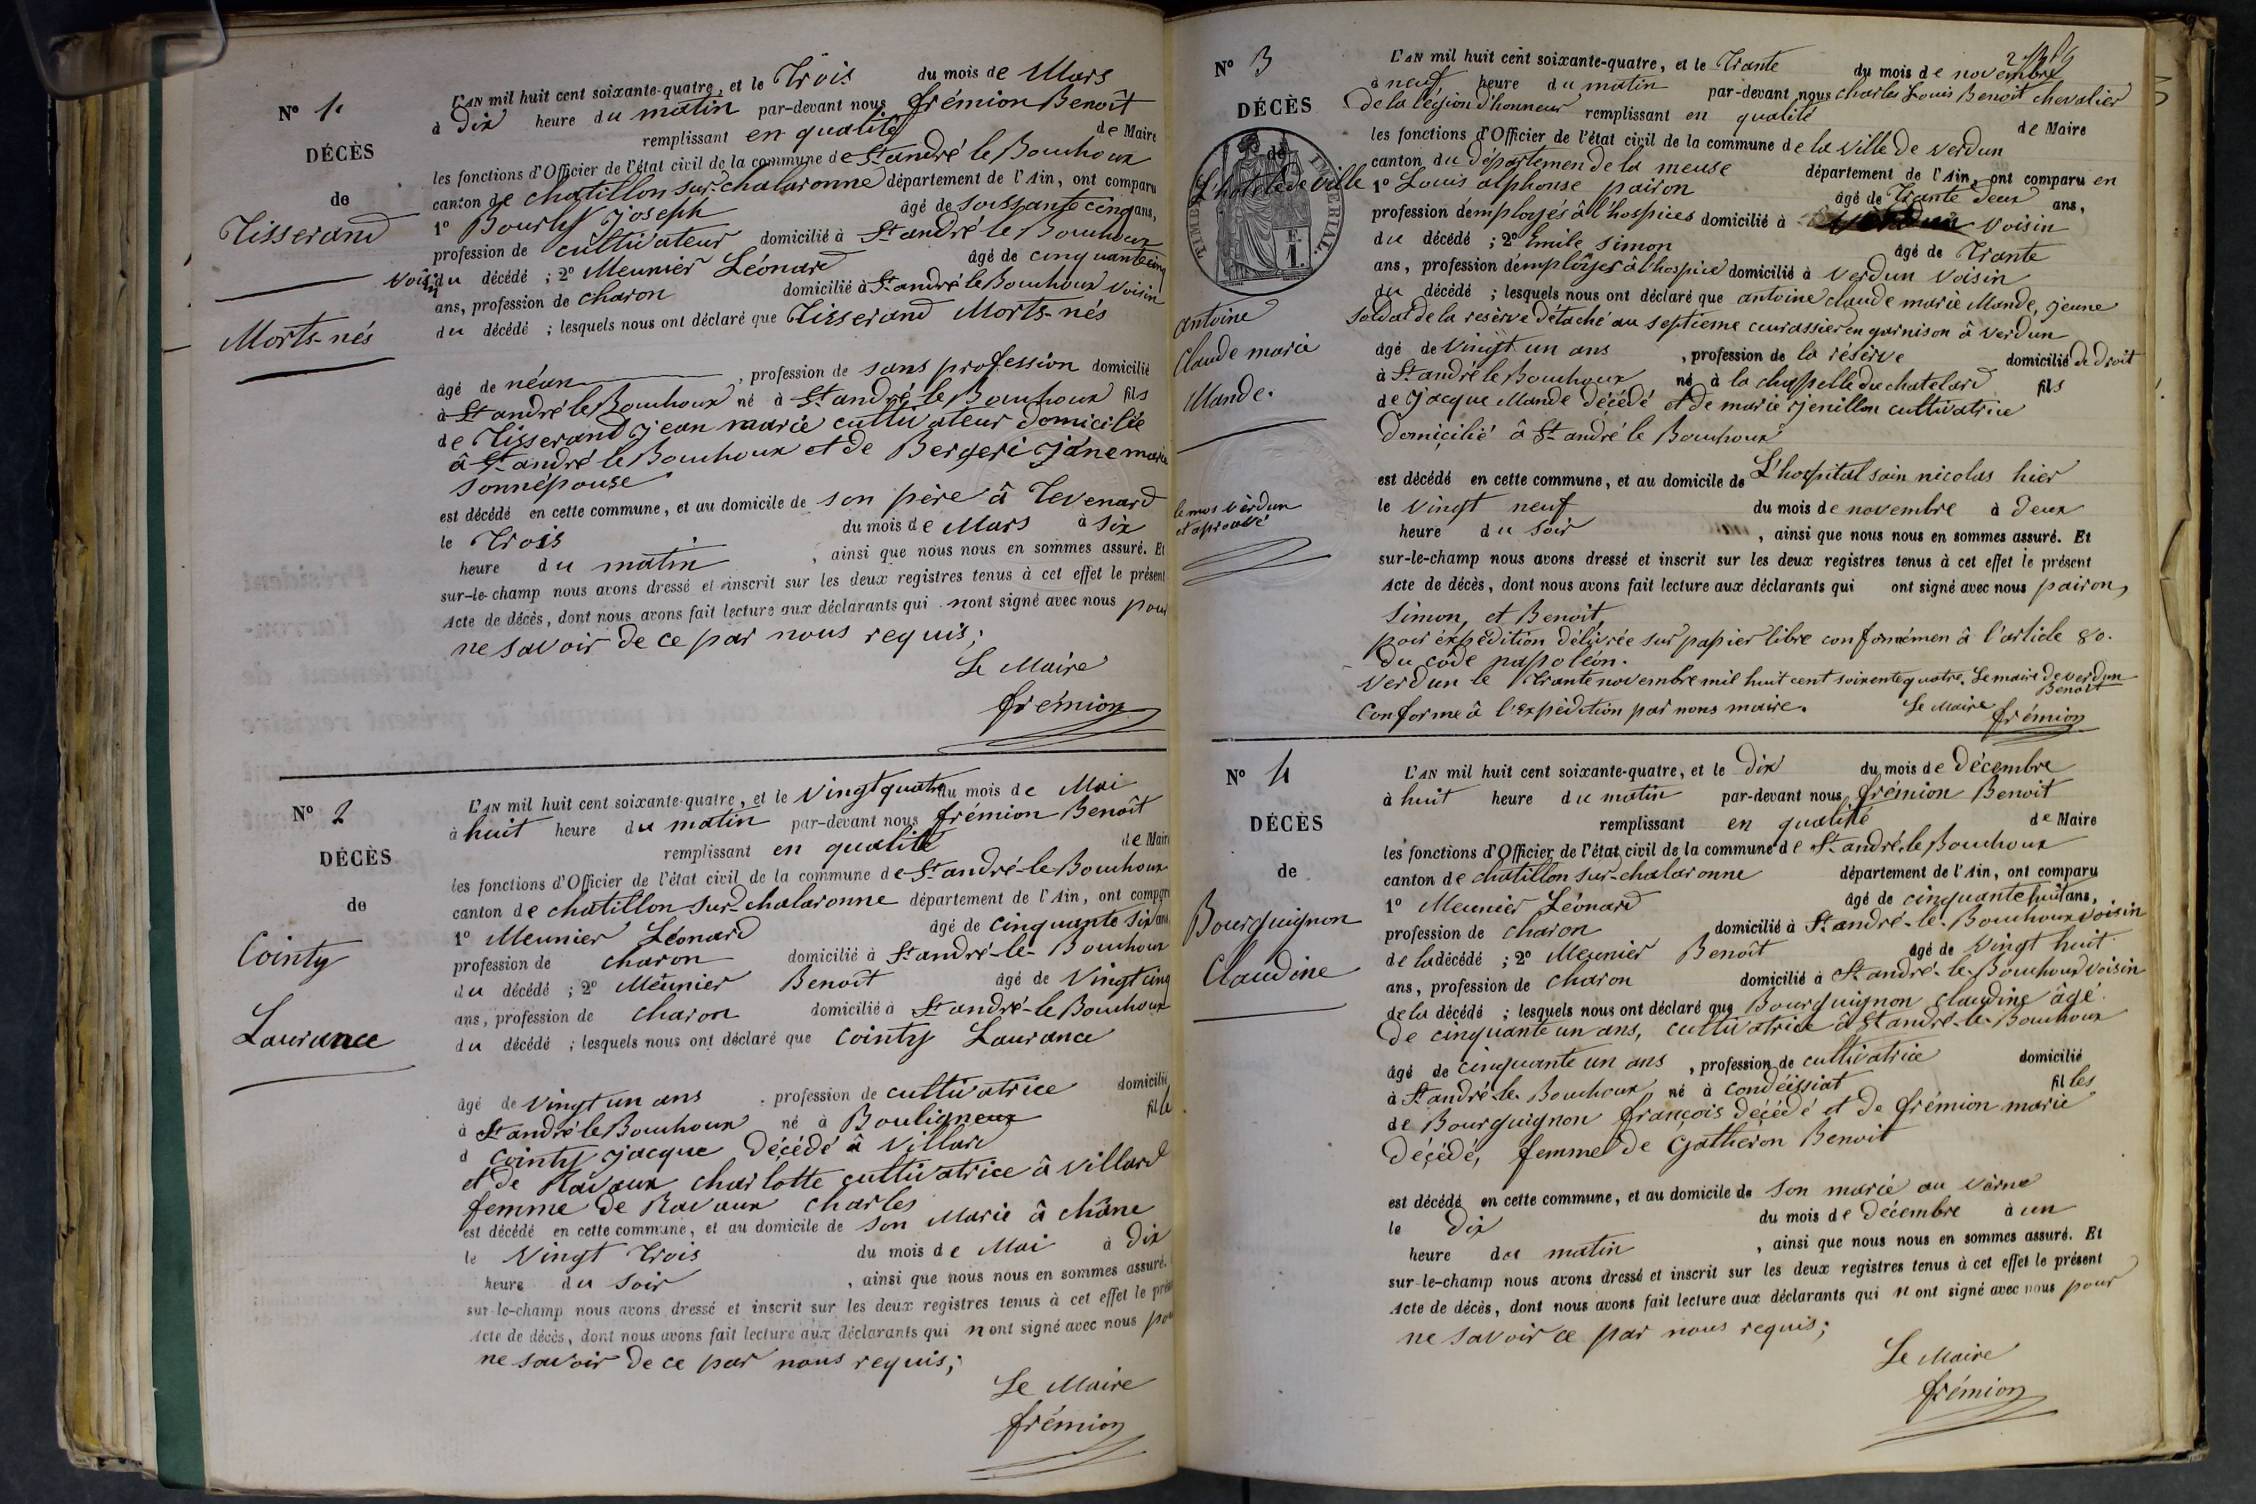 N° 1.
DÉCÈS
de
Tisserand
Morts-nés
L'AN mil huit cent soixante-quatre, et le Trois du mois de Mars
à Dix heure du matin par-devant nous frémion Benoît
remplissant en qualité de Maire
les fonctions d'Officier de l'état civil de la commune de St andré le Bouchoux
canton de chatillon sur chalaronne département de l'Ain, ont comparu
1° Bourly Joseph âgé de soissante cinq ans,
profession de cultivateur domicilié à St andré le Bouchoux
voisin du décédé ; 2° Meunier Léonard âgé de cinquante cinq
ans, profession de charon domicilié à St andré le Bouchoux voisin
du décédé ; lesquels nous ont déclaré que Tisserand Morts-nés
âgé de néan , profession de sans profession domicilié
à St andré le Bouchoux né à St andré le Bouchoux fils
de Tisserand jean marie cultivateur domicilié
à St andré le Bouchoux et de Bergeri jáne marie
sonnépouse
est décédé en cette commune, et au domicile de son père à Tevenard
le Trois du mois de Mars à six
heure du matin , ainsi que nous nous en sommes assuré. Et
sur-le-champ nous avons dressé et inscrit sur les deux registres tenus à cet effet le présent
Acte de décès, dont nous avons fait lecture aux déclarants qui nont signé avec nous pour
ne savoir de ce par nous requis;
Le Maire
frémion
N° 2
DÉCÈS
de
Cointy
Laurance
L'AN mil huit cent soixante-quatre, et le vingt quatre du mois de Mai
à huit heure du matin par-devant nous frémion Benoît
remplissant en qualité de Maire
les fonctions d'Officier de l'état civil de la commune de St andré-le Bouchoux
canton de chatillon sur-chalaronne département de l'Ain, ont comparu
1° Meunier Léonard âgé de cinquante six ans
profession de charon domicilié à St andré-le-Bouchoux
du décédé ; 2° Meunier Benoît âgé de vingt cinq
ans, profession de charon domicilié à St andré-le Bouchoux
du décédé ; lesquels nous ont déclaré que Cointy Laurance
âgé de vingt un ans . profession de cultivatrice domicilié
à St andré le Bouchoux né à Bouligneux fille
d Cointy jacque décédé à villard
et de Ravaux charlotte cultivatrice à villard
femme de Ravaux charles
est décédé en cette commune, et au domicile de son Marie à châne
le vingt Trois du mois de Mai à dix
heure du soir , ainsi que nous nous en sommes assuré.
sur-le-champ nous avons dressé et inscrit sur les deux registres tenus à cet effet le présent
Acte de décès, dont nous avons fait lecture aux déclarants qui nont signé avec nous pour
ne savoir de ce par nous requis;
Le Maire
frémion
N° 3
DÉCÈS
de
L'hotel de ville
TIMBRE IMPÉRIAL
antoine
Claude marie
Mande.
et aprouvé
L'AN mil huit cent soixante-quatre, et le Trante du mois de novembre
à neuf heure du matin par-devant nous charles Louis Benoit chevalier
de la légion d'honneur remplissant en qualité de Maire
les fonctions d'Officier de l'état civil de la commune de la ville de verdun
canton du département de la meuse département de l'Ain, ont comparu en
1° Louis alphonse pairon âgé de Trante deux ans,
profession d'employés à l'hospices domicilié à voisin
du décédé ; 2° Emile simon âgé de Trante
ans, profession d'employés à l'hospice domicilié à verdun voisin
du décédé ; lesquels nous ont déclaré que antoine claude marie Mande, jeune
soldat de la reserve détaché au septieme cuirassier en garnison à verdun
âgé de vingt un ans , profession de la réserve domicilié de droit
à St andré le Bouchoux né à la chappelle du chatelard fils
de jacque Mande décédé et de marie jenillon cultivatrice
domicilié à St andré le Bouchoux
est décédé en cette commune, et au domicile de L'hospital sain nicolas hier
le vingt neuf du mois de novembre à deux
heure du soir , ainsi que nous nous en sommes assuré. Et
sur-le-champ nous avons dressé et inscrit sur les deux registres tenus à cet effet le présent
Acte de décès, dont nous avons fait lecture aux déclarants qui ont signé avec nous pairon,
Simon, et Benoit,
pour expédition délivrée sur papier libre conformémen à l'article 80.
du côde napoléon.
verdun le Trante novembre mil huit cent soixente quatre. Le maire de verdun
Benoit
Conforme à l'expédition par nous maire. Le Maire frémion
N° 4
DÉCÈS
de
Bourguignon
Claudine
L'AN mil huit cent soixante-quatre, et le Dix du mois de Décembre
à huit heure du matin par-devant nous frémion Benoit
remplissant en qualité de Maire
les fonctions d'Officier de l'état civil de la commune de St andré le Bouchoux
canton de chatillon sur-chalaronne département de l'Ain, ont comparu
1° Meunier Léonard âgé de cinquante huit ans,
profession de charon domicilié à St andré-le-Bouchoux voisin
de la décédé ; 2° Meunier Benoît âgé de vingt huit
ans, profession de charon domicilié à St andré-le-Bouchoux voisin
de la décédé ; lesquels nous ont déclaré que Bourguignon claudine âgé
de cinquante un ans, cultivatrice à St andré-le-Bouchoux
âgé de cinquante un ans , profession de cultivatrice domicilié
à St andré-le-Bouchoux né à condéissiat filles
de Bourguignon françois décédé et de frémion marie
décédé, femme de Gatheron Benoit
est décédé en cette commune, et au domicile de son marié au verne
le dix du mois de décembre à un
heure du matin , ainsi que nous nous en sommes assuré. Et
sur-le-champ nous avons dressé et inscrit sur les deux registres tenus à cet effet le présent
Acte de décès, dont nous avons fait lecture aux déclarants qui n ont signé avec nous pour
ne savoir ce par nous requis;
Le Maire
frémion